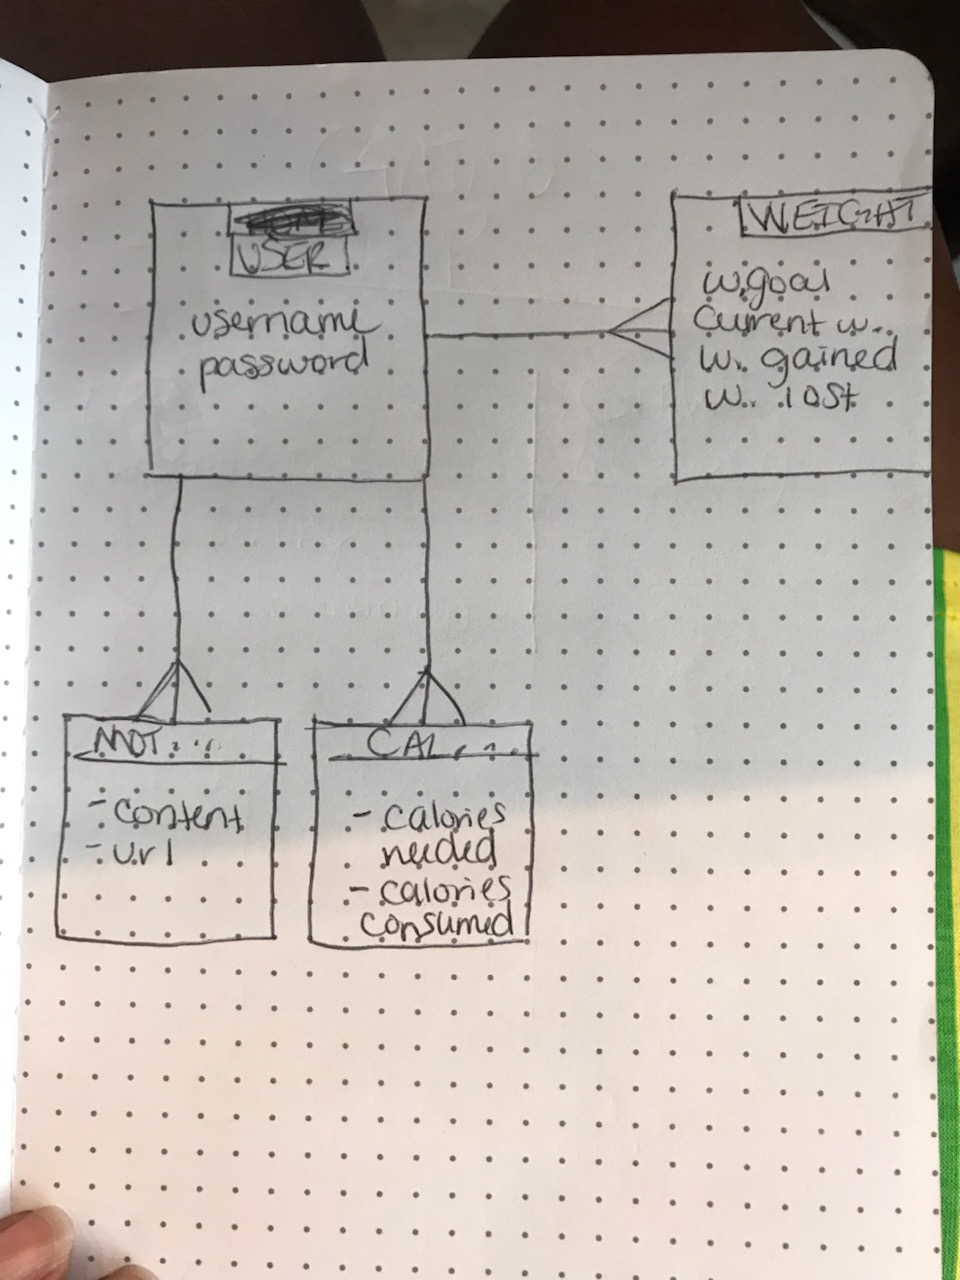 USER
username
password
WEIGHT
w.goal
current w..
w. gained
w.. lost
MOT....
- content
- url
CAL....
- calories
needed
- calories
consumed